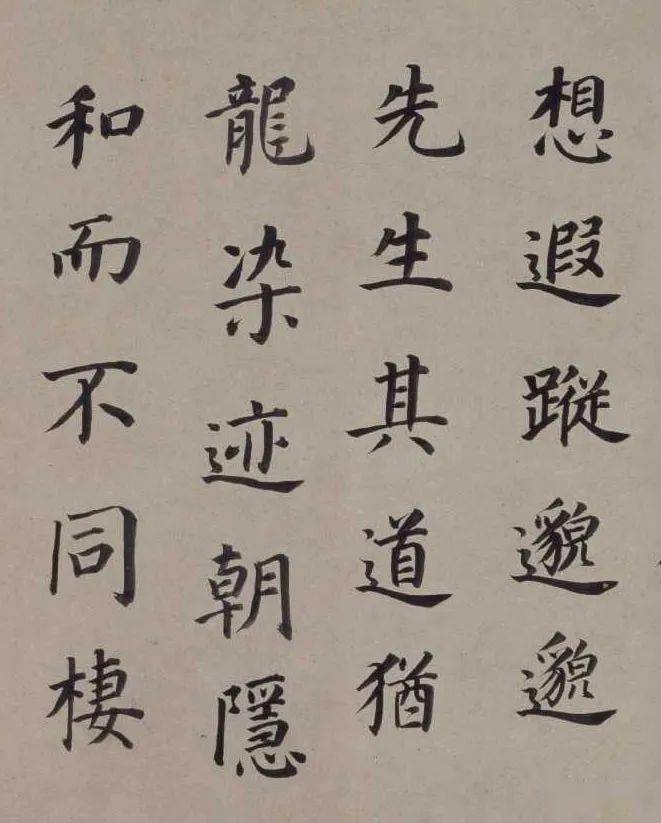 想遐蹤邈邈
先生其道猶
龍染迹朝隱
和而不同棲